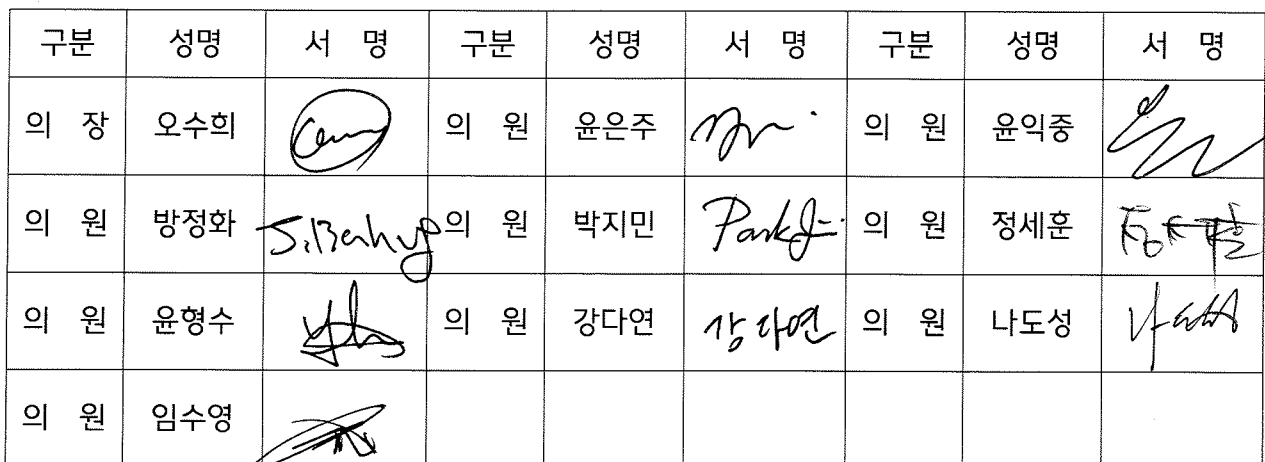 구분 성명 서 명 구분 성명 서 명 구분 성명 서 명
의 장 오수희 의 원 윤은주 의 원 윤익중
의 원 방정화 의 원 박지민 Park 의 원 정세훈
의 원 윤형수 의 원 강다연 강다연 의 원 나도성
의 원 임수영